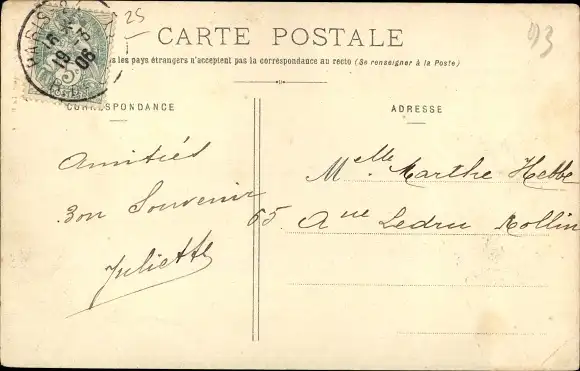 25
93
CARTE POSTALE
s les pays étrangers n'acceptent pas la correspondance au recto (Se renseigner à la Poste)
CORRESPONDANCE
ADRESSE
Amitiés
Bon Souvenir
Juliette
Melle Marthe Hebbe
65 Aue Ledru Rollin
PARIS